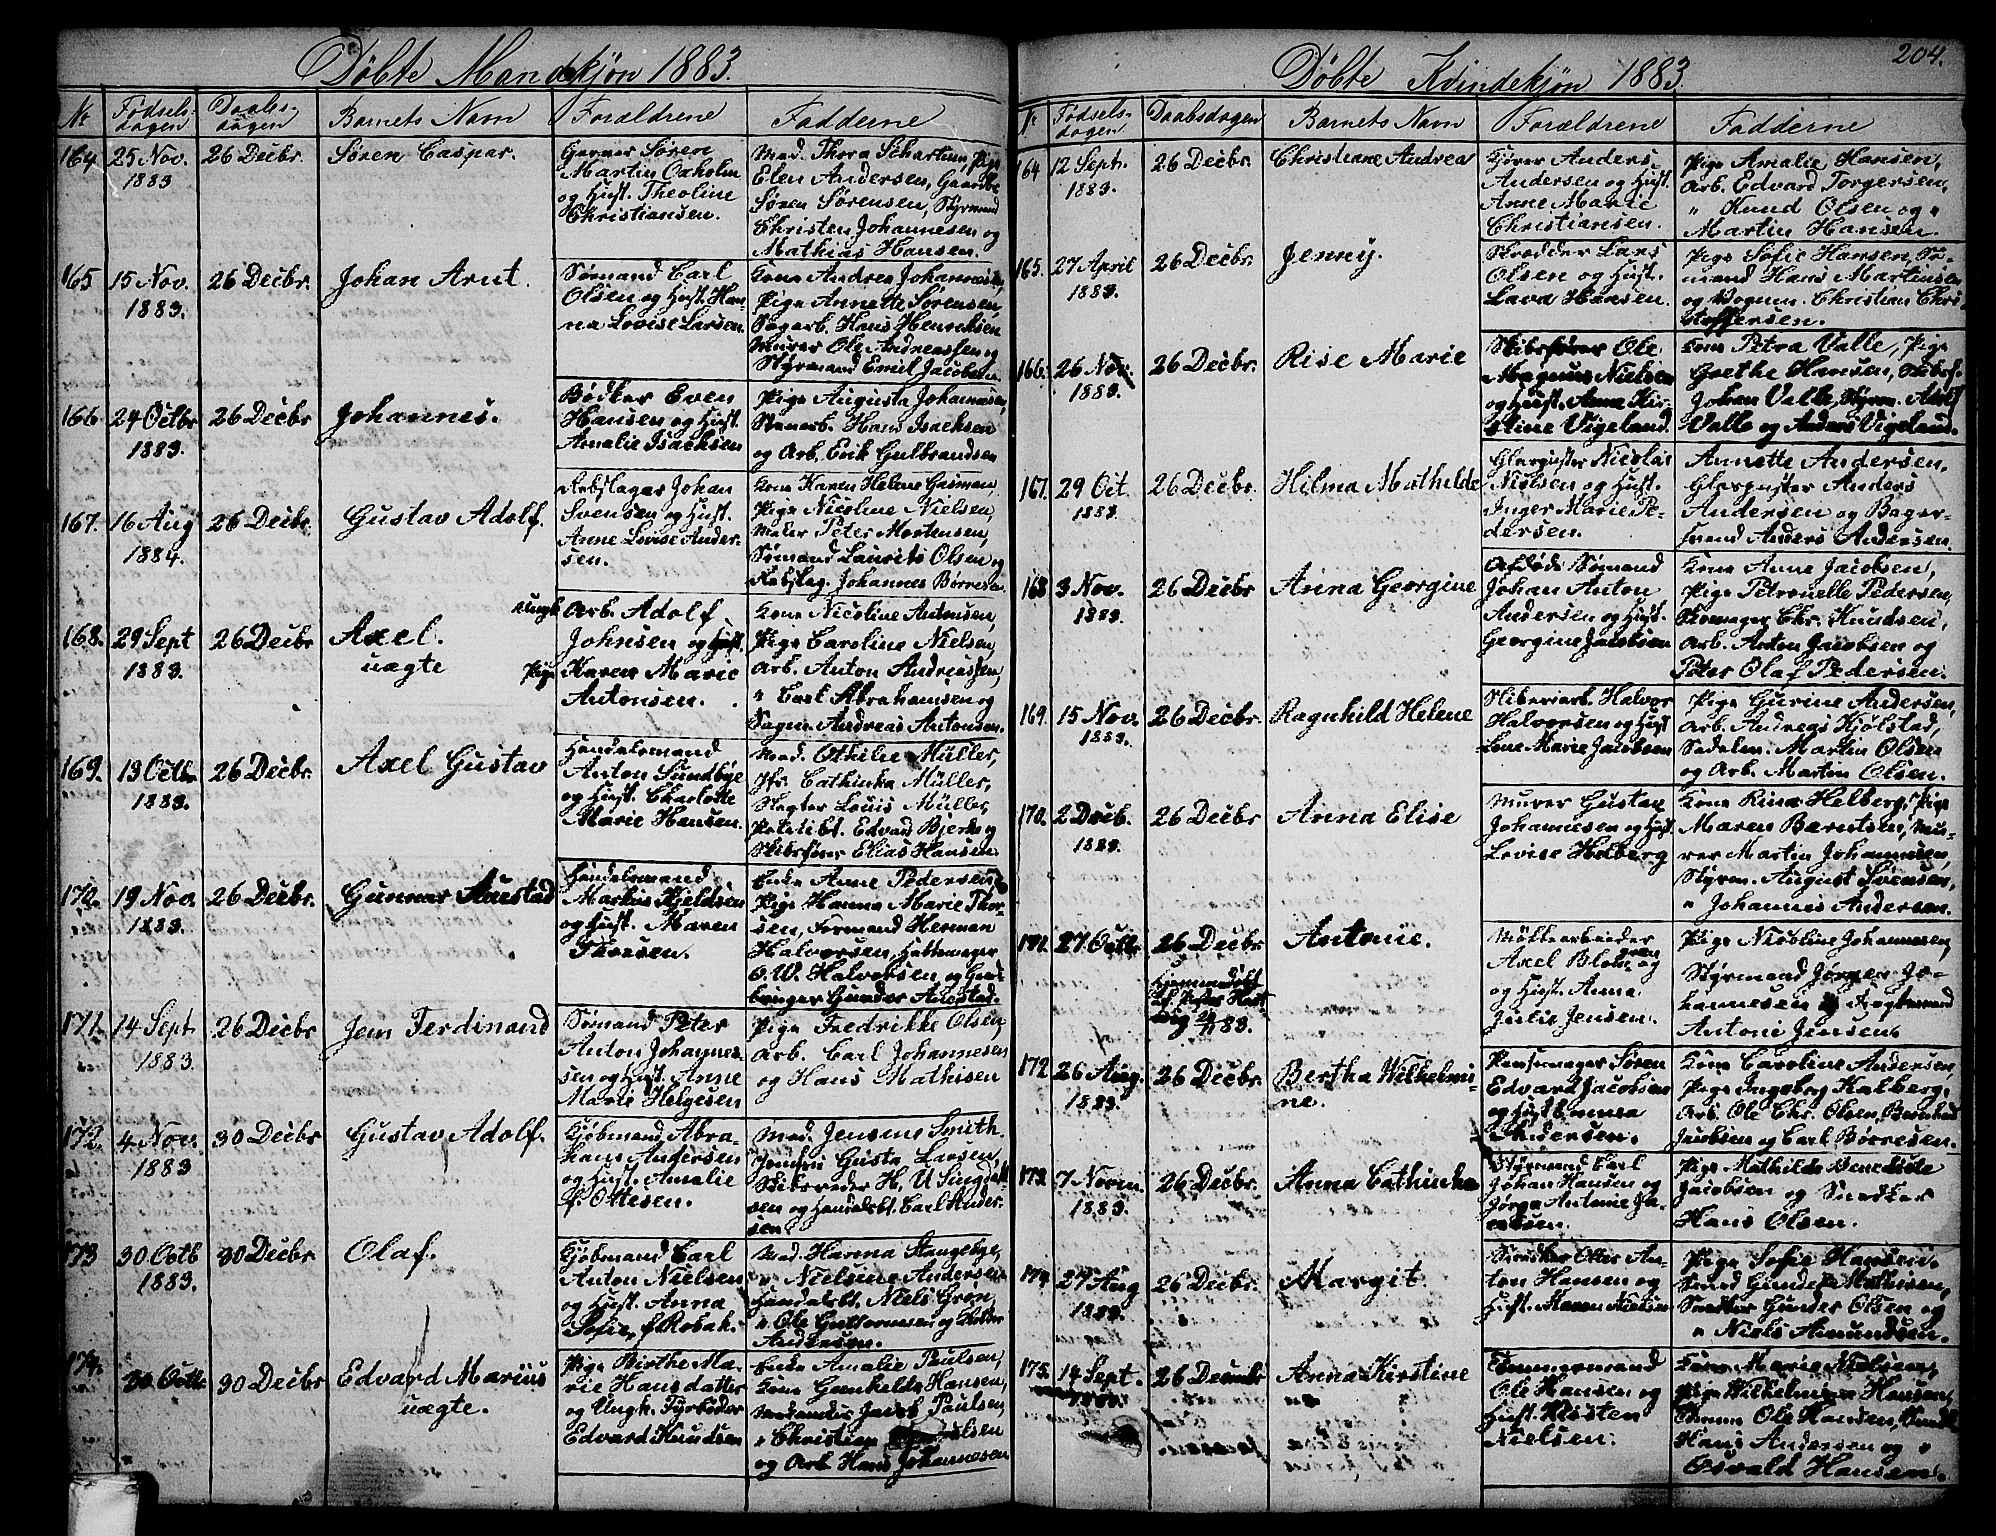 Døbte Mandkjøn 1883.
Nr Fødselsdagen Daabsdagen Barnets Navn Forældrene Fadderne
164 25 Nov. 1883 26 Decbr. Søren Caspar.
Garver Søren
Martin Oxholm
og Hust. Theoline
Christiansen.
Mad. Thora Schartum, Pige
Elen Andersen, Gaardbr
Søren Sørensen, Styrmand
Christen Johannesen og
Mathias Hansen.
165 15 Nov. 1883. 26 Decbr. Johan Arnt.
Sømand Carl
Olsen og Hust. Han-
na Lovise Larsen
Kone Andrea Johannesen
Pige Annette Sørensen,
Sagarb. Hans Henriksen
Murer Ole Andreassen og
Styrmand Emil Jacobsen
166 24 Octbr 1883. 26 Decbr Johannes.
Bødker Even
Hansen og Hust.
Amalie Isachsen
Pige Augusta Johannesen,
Stenarb. Hans Isachsen
og Arb. Erik Gulbrandsen
167. 16 Aug 1884. 26 Decbr. Gustav Adolf.
Rebslager Johan
Svensen og Hust.
Anne Lovise Ander-
sen.
Kone Karen Helene Gasman,
Pige Nicoline Nielsen,
Maler Peter Mortensen,
Sømand Laurits Olsen og
Rebslag. Johannes Børresen
168. 29 Sept 1883. 26 Decbr Axel. uægte
Ungk. Arb. Adolf
Johnsen og
Pige Karen Marie
Antonsen.
Kone Nicoline Antonsen,
Pige Caroline Nielsen,
Arb. Anton Andreassen,
" Carl Abrahamsen og
Andreas Antonsen.
169. 19 Octb. 1883. 26 Decbr. Axel Gustav
Handelsmand
Anton Sundbye
og Hust. Charlotte
Marie Hansen.
Mad. Othilie Müller,
Jfr. Cathinka Müller,
Slagter Louis Müller,
Edvard Bjerk og
Skibsfører Elias Hansen
170. 19 Nov. 1883. 26 Decbr. Gunnar Aurstad
Handelsmand
Markus Kjeldsen
og Hust. Maren
Thoresen.
Enke Anne Pedersen,
Pige Hanna Marie Thor-
sen, Formand Herman
Halvorsen, Hattemager
O. W. Halvorsen, og Gaard-
bruger Gunder Aurstad.
171. 14 Sept. 1883. 26 Decbr Jens Ferdinand
Sømand Peter
Anton Johannes-
sen og Hust. Anne
Marie Helgesen
Pige Fredrikke Olsen,
Arb. Carl Johannesen
og Hans Mathisen
172 4 Nov. 1883 30 Decbr Gustav Adolf.
Kjøbmand Abra-
ham Andersen
og Hust. Amalie
f. Ottesen.
Mad. Jensine Smith.
Jomfru Gusta Larsen,
Skibsreder H. U Sing
sen og Handelsbt. Carl Ander-
sen.
173 30 Octb 1883. 30 Decbr Olaf.
Kjøbmand Carl
Anton Nielsen
og Hust. Anna
Sofie, f. Robak.
Mad. Hanna Stangebye,
" Nielsine Andersen
Handelsbt. Niels Grøn,
" Ole Guttormsen og
Andersen.
174. 30 Octb. 30 Decbr Edvard Marius uægte.
Pige Birthe Ma-
rie Hansdatter
og Ungk. Fyrbøder
Edvard Knudsen
Enke Amalie Paulsen,
Kone Gunhilde Hansen,
Jacob Paulsen,
" Christian
og Arb. Hans Johannesen
204.
Døbte Kvindekjøn 1883.
Nr Fødselsdagen Daabsdagen Barnets Navn Forældrene Fadderne
164 12 Sept. 1883. 26 Decbr. Christiane Andrea
Kjører Anders
Andersen og Hust.
Anne Marie
Christiansen.
Pige Amalie Hansen,
Arb. Edvard Torgersen,
" Knud Olsen og "
Martin Hansen.
165. 27 April 1883. 26 Decbr. Jenny.
Skredder Lars
Olsen og Hust.
Lava Hansen.
Pige Sofie Hansen, Sø-
mand Hans Martinsen
og Vognm. Christian Chri-
stoffersen.
166. 26 Nov. 1883. 26 Decbr. Rise Marie
Skibsfører Ole
Magnus Nielsen
og Hust. Anna Kir-
stine Vigeland.
Kone Petra Valle, Pige
Grethe Hansen, Skibsf.
Johan Valle, Styrm. Adolf
Valle og Anders Vigeland.
167. 29 Oct. 1883. 26 Decbr. Hilma Mathilde
Glarmester Nicolai
Nielsen og Hust.
Inger Marie Pe-
dersen.
Annette Andersen,
Glarmester Anders
Andersen og Bager-
svend Anders Andersen.
168 3 Nov. 1883. 26 Decbr Anna Georgine
Afdøde Sømand
Johan Anton
Andersen og Hust.
Georgine Jacobsen
Kone Anne Jacobsen,
Pige Petronelle Pedersen,
Skomager Chr. Knudsen,
Arb. Anton Jacobsen og
Peter Olaf Pedersen.
169. 15 Nov. 1883. 26 Decbr Ragnhild Helene
Skiberiarb. Halvor
Halvorsen og Hust
Lene Marie Jacobsen
Pige Gurine Andersen,
Arb. Andreas Kjølstad,
Martin Olsen
og Arb. Martin Olsen.
170. 2 Decb. 1883. 26 Decbr Anna Elise
Murer Gustav
Johannesen og Hust.
Lovise Helberg
Kone Rina Helberg, Pige
Maren Berntsen, Mu-
rer Martin Johannesen,
Styrm. August Svensen,
" Johannes Andersen.
171. 27 Octb. 26 Decbr Antonie.
Hjemmedøbt
83.
Møllearbeider
Axel Blom
og Hust. Anna
Julie Jensen.
Pige Nicoline Johannesen,
Styrmand Jørgen Jo-
hannesen og Fragtemand
Antoni Jensen.
172. 26 Aug. 1883. 26 Decbr Bertha Wilhelmi-
ne.
Søren
Edvard Jacobsen
og Hust Emma
Andersen.
Kone Caroline Andersen,
Pige Ingeborg Kalberg,
Arb. Ole Chr. Olsen, Bernhad
Jacobsen og Carl Børresen.
173. 7 Novm. 1883. 26 Decbr. Anna Cathinka
Styrmand Carl
Johan Hansen og
Antonie Ja-
cobsen.
Pige Mathilde Benedicte
Jacobsen og Snedker
Hans Olsen.
174. 27 Aug 1883. 26 Decbr. Margit.
Snedker Otter An-
ton Hansen og
Hust. Maren Nielsen
Pige Sofie Hansen,
Mathisen,
Snedker Gunder Olsen og
" Niels Amundsen.
175. 14 Sept. 26 Decmbr Anna Kirstine
Tømmermand
Ole Hansen og
Hust. Kirsten
Nielsen.
Kone Marie Nielsen,
Pige Wilhelmine Hansen,
Ole Hansen,
Hans Andersen og "
Osvald Hansen.